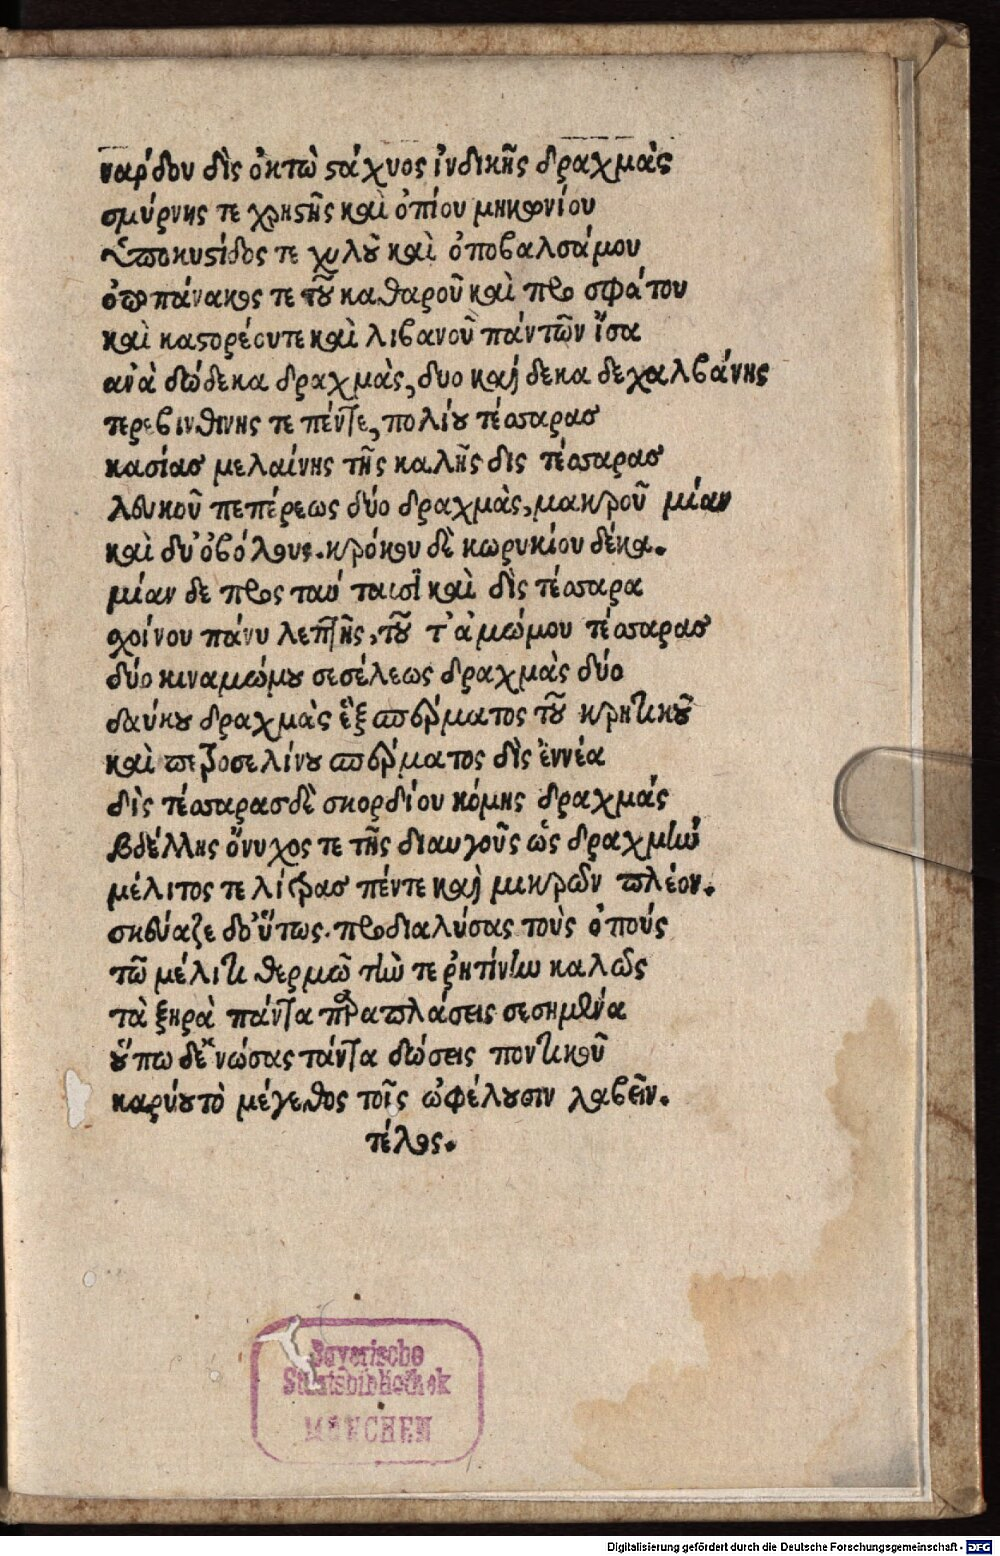 νάρδου δὶς ὀκτὼ στάχυος ἰνδικῆς δραχμὰς
σμύρνης τε χρηστῆς καὶ ὀπίου μηκωνίου
ὑποκυστίδος τε χυλοῦ καὶ ὀποβαλσάμου
ὀποπάνακος τε τοῦ καθαροῦ καὶ προσφάτου
καὶ καστορέου τε καὶ λιβανοῦ πάντων ἴσα
ανὰ δώδεκα δραχμὰς, δυο καὶ δεκα δε χαλβάνης
τερεβινθινης τε πέντε, πολίου τέσσαρας
κασίας μελαίνης τῆς καλῆς δὶς τέσσαρας
λευκοῦ πεπέρεως δύο δραχμὰς, μακροῦ μίαν
καὶ δυ' ὀβόλους. κρόκου δὲ κωρυκίου δέκα.
μίαν δε προς ταύταισϊ καὶ δὶς τέσσαρα
σχοίνου πάνυ λεπτῆς, τοῦ τ' ἀμώμου τέσσαρας
δύο κιναμώμου σεσέλεως δραχμὰς δύο
δαύκου δραχμὰς ἓξ σπέρματος τοῦ κρητικοῦ
καὶ πετροσελίνου σπέρματος δὶς ἐννέα
δὶς τέσσαρας δὲ σκορδίου κόμης δραχμάς
βδέλλης ὄνυχος τε τῆς διαυγοῦς ὡς δραχμὴν
μέλιτος τε λίτρας πέντε καὶ μικρὸν πλέον.
σκεύαζε δ' οὕτως. προδιαλύσας τοὺς ὀπούς
τῶ μέλιτι θερμῶ τὴν τε ῥητίνην καλῶς
τὰ ξηρὰ πάντα παραπλάσεις σεσημένα
οὕτω δ' ἑνώσας πάντα δώσεις ποντικοῦ
καρύου τὸ μέγεθος τοῖς ὠφέλουσιν λαβεῖν.
τέλος.
Bayerische
Staatsbibliothek
MÜNCHEN
Digitalisierung gefördert durch die Deutsche Forschungsgemeinschaft - DFG